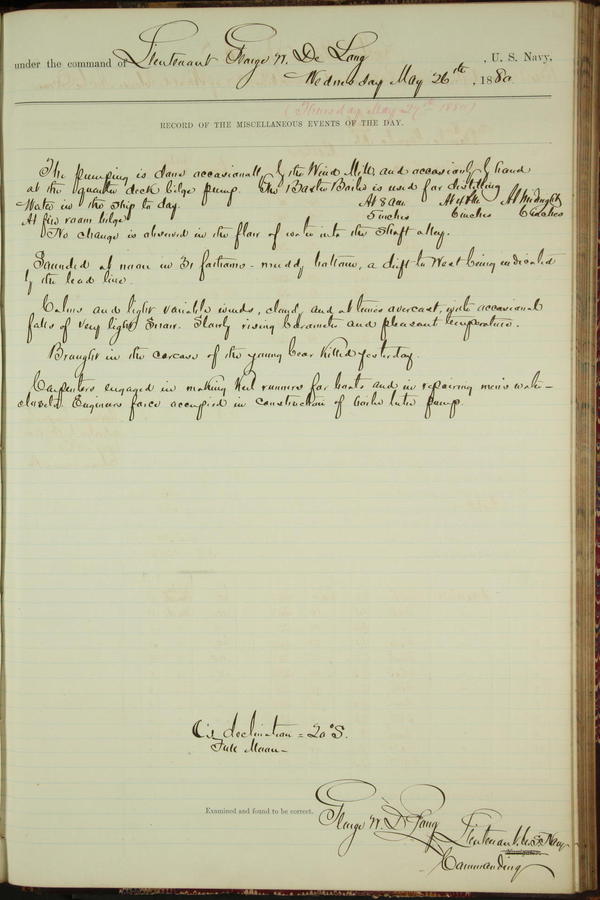 under the command of Lieutenant George W. De Long , U. S. Navy,
Wednesday May 26th , 1880
(Thursday May 27th 1880)
RECORD OF THE MISCELLANEOUS EVENTS OF THE DAY.
The pumping is done occasionally by the Wind Mill, and occasionly by hand
at the quarter deck bilge pump. The Baxter Boiler is used for distilling
Water in the Ship to day. At 8 am At 4 PM At Midnight
At fire room bilge 5 inches 6 inches 6 inches
No change is observed in the flow of water into the Shaft alley.
Sounded at noon in 31 fathoms - muddy bottom, a drift to West being indicated
by the lead line.
Calms and light variable winds, cloudy and at times overcast, with occasional
falls of very light snow. Slowly rising barometer and pleasant temperature.
Brought in the carcass of the young bear killed yesterday.
Carpenters engaged in making keel runners for boats and in repairing men's water-
closet. Engineers force occupied in construction of boiler pump.
declination = 20° S.
Full Moon -
Examined and found to be correct.
George W. De Long Lieutenant U.S. Navy
Commanding